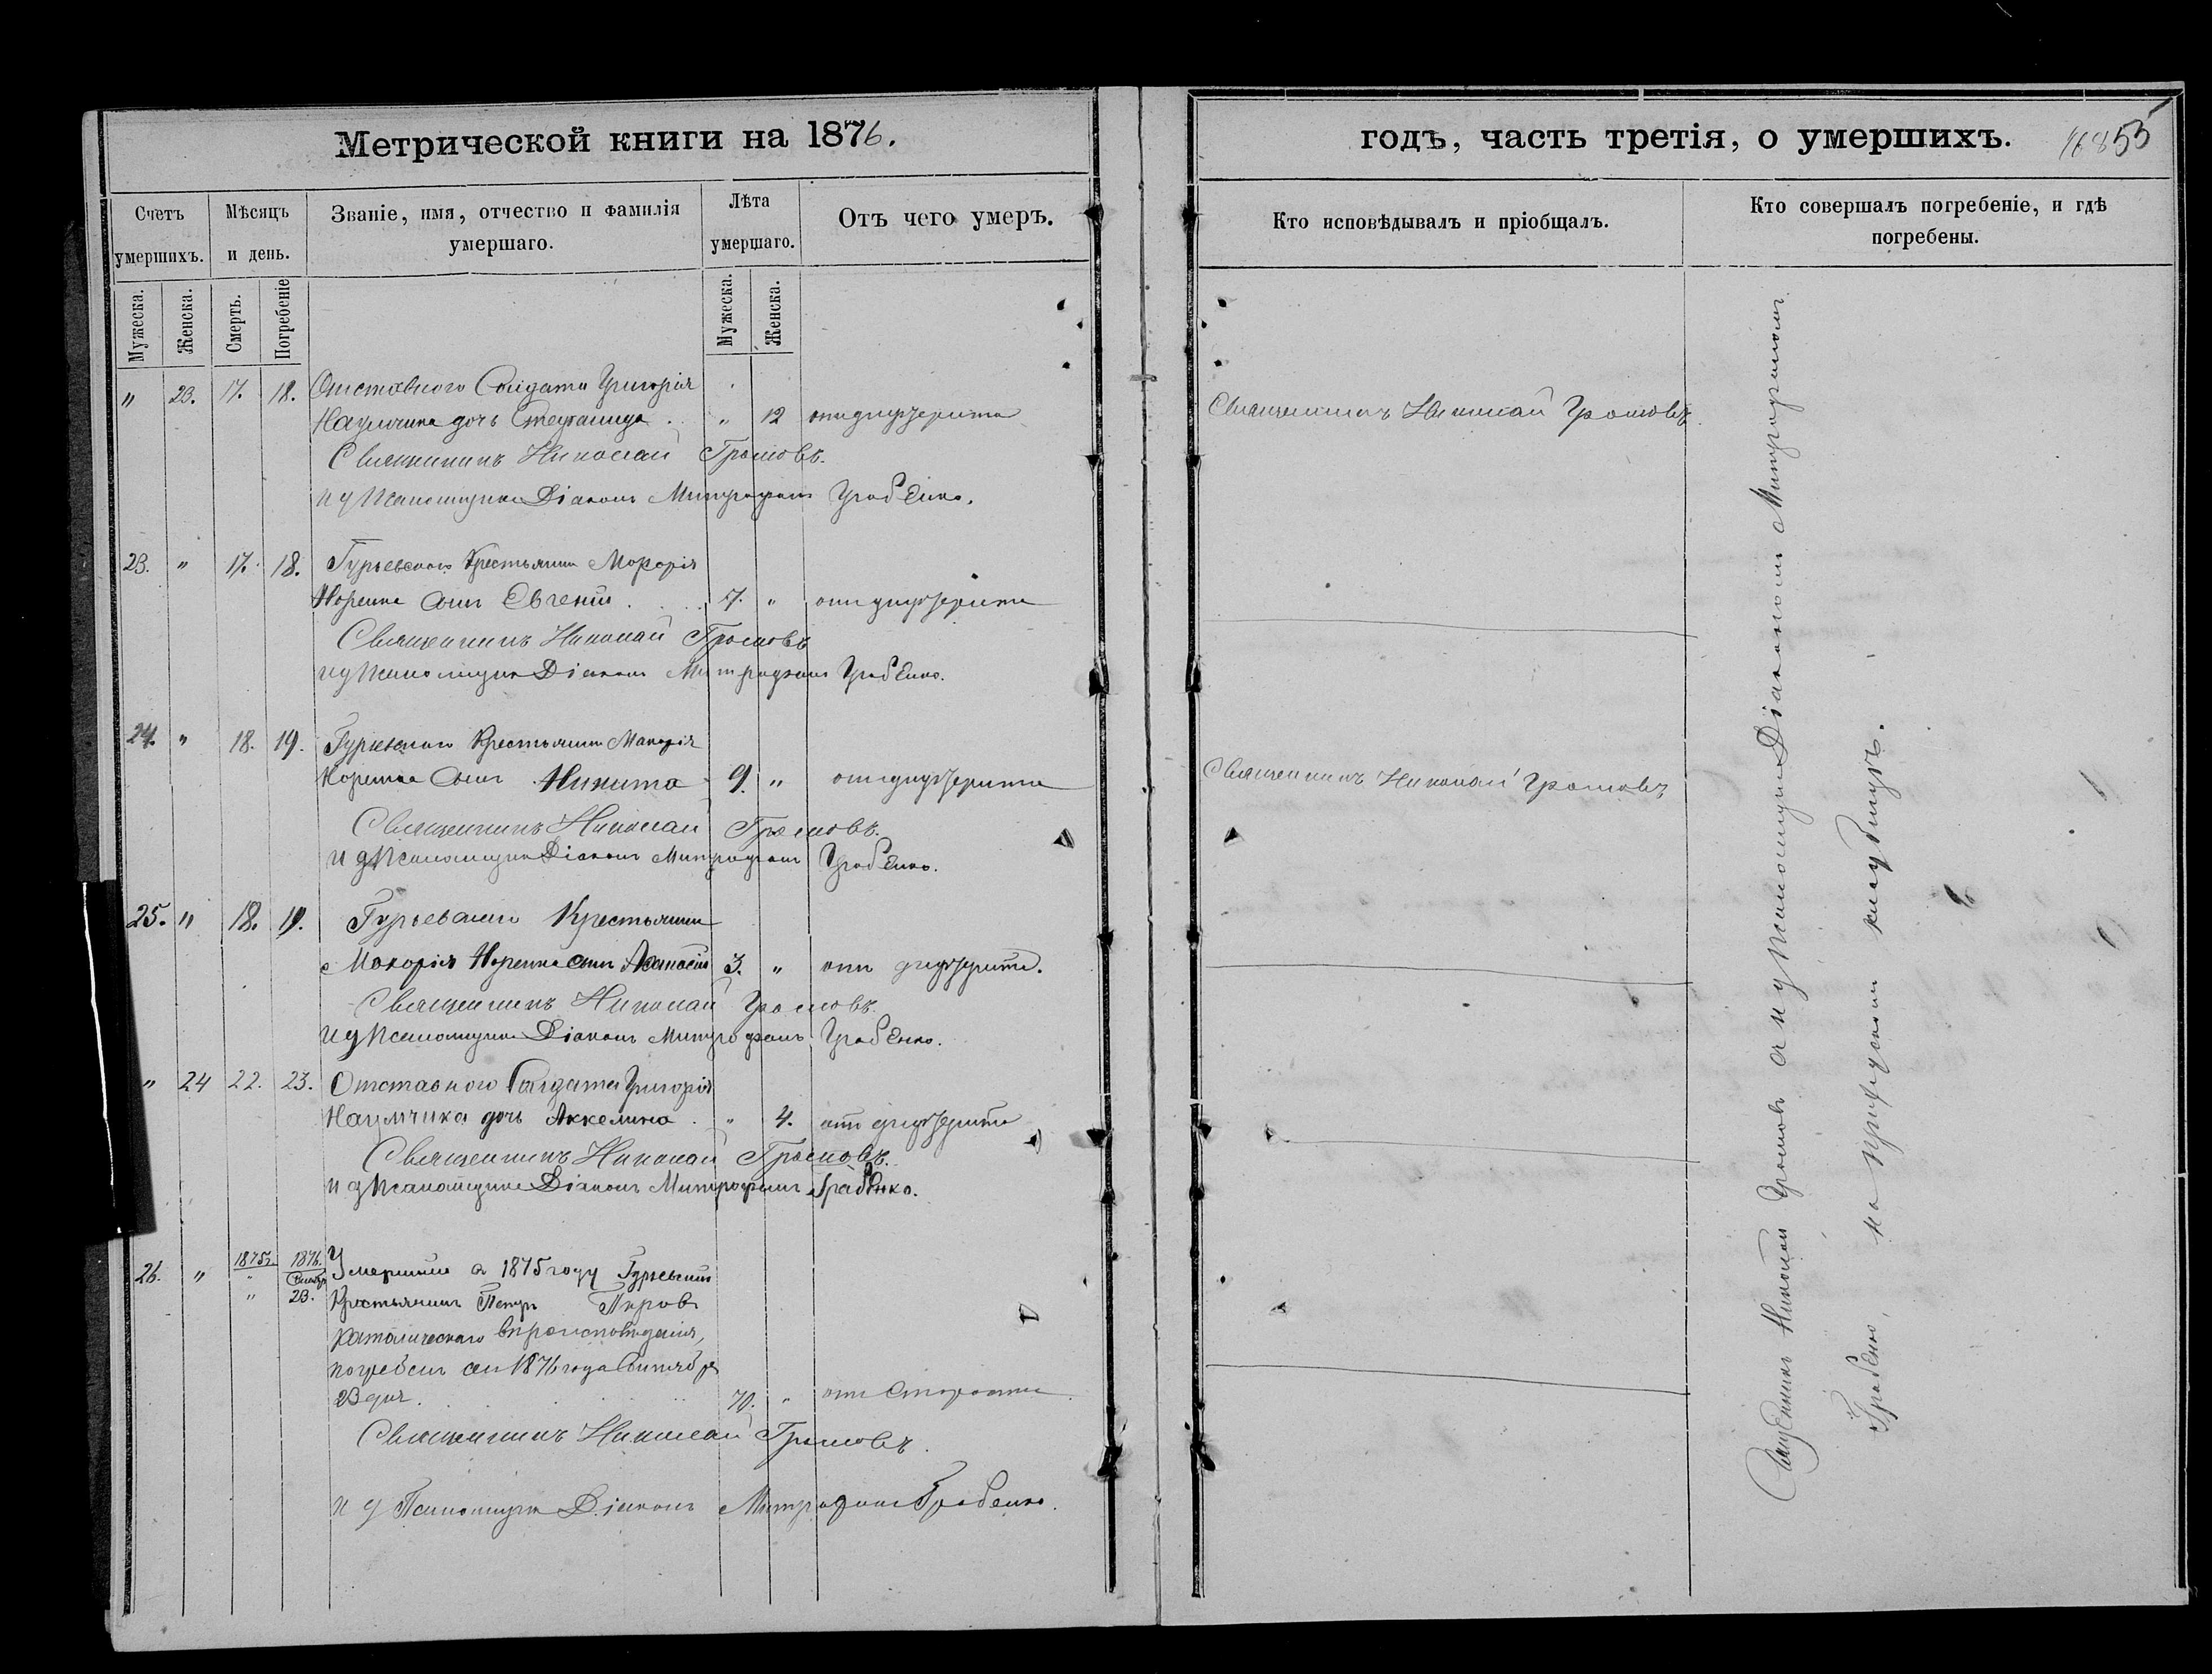 Метрической книги на 1876.
годъ, часть третія, о умершихъ.
55
Счетъ умершихъ.
Мѣсяцъ и день.
Званіе, имя, отчество и фамилія умершаго.
Лѣта умершаго.
Отъ чего умеръ.
Кто исповѣдывалъ и пріобщалъ.
Кто совершалъ погребеніе, и гдѣ погребены.
Мужеска.
Женска.
Смерть.
Погребеніе
Мужеска.
Женска.
" 23. 17. 18. Отставного Солдата Григорія
Наумчика дочь Стефанида " 12 отъ дифтерита Священникъ Николай Громовъ
Священникъ Николай Громовъ.
и д Псаломщика Діаконъ Митрофанъ Грабенко.
23. " 17. 18. Гурьевского Крестьянина
сынъ Евгеній 7. " отъ дифтерита
Священникъ Николай Громовъ
и д Псаломщика Діаконъ Митрофанъ Грабенко.
24. " 18. 19. Гурьевского Крестьянина Макарія
сынъ Никита 9. " отъ дифтерита Священникъ Николай Громовъ
Священникъ Николай Громовъ.
и д Псаломщика Діаконъ Митрофанъ Грабенко.
25. " 18. 19. Гурьевского Крестьянина
Макорія сынъ 3. " отъ дифтерита.
Священникъ Николай Громовъ.
и д Псаломщика Діаконъ Митрофанъ Грабенко.
" 24 22. 23. Отставного Солдата Григорія
Наумчика дочь Аккелина " 4. отъ дифтерита
Священникъ Николай Громовъ.
и д Псаломщика Діаконъ Митрофанъ Грабенко.
26. " 1875г. 1876.
" 23. Умершій в 1875 году Гурьевскій
Крестьянинъ Петръ
католическаго вѣроисповѣданія,
погребенъ 1876 года Сентября
23 дня. 70. " отъ Старости
Священникъ Николай Громовъ.
и д Псаломщика Діаконъ Митрофанъ Грабенко.
Священникъ Николай Громовъ с и д Псаломщика Діакономъ Митрофаномъ
Грабенко, на приходскомъ кладбищѣ.